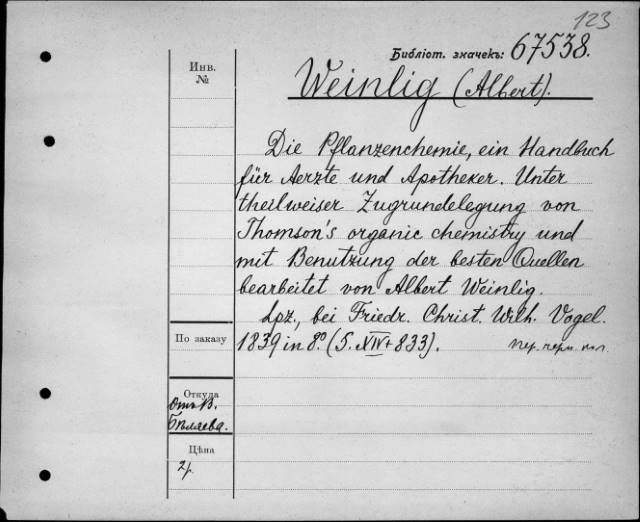 123
Библіот. значекъ: 67538.
Инв.
№
Weinlig (Albert).
Die Pflanzenchemie, ein Handbuch
für Aerzte und Apotheker. Unter
theilweiser Zugrundelegung von
Thomson's organic chemistry und
mit Benutzung der besten Quellen
bearbeitet von Albert Weinlig.
Lpz., bei Friedr. Christ. Wilh. Vogel.
1839 in 8º. (S. XIV+833).
По заказу
Откуда
Отъ В.
Бѣляева.
Цѣна
2р.